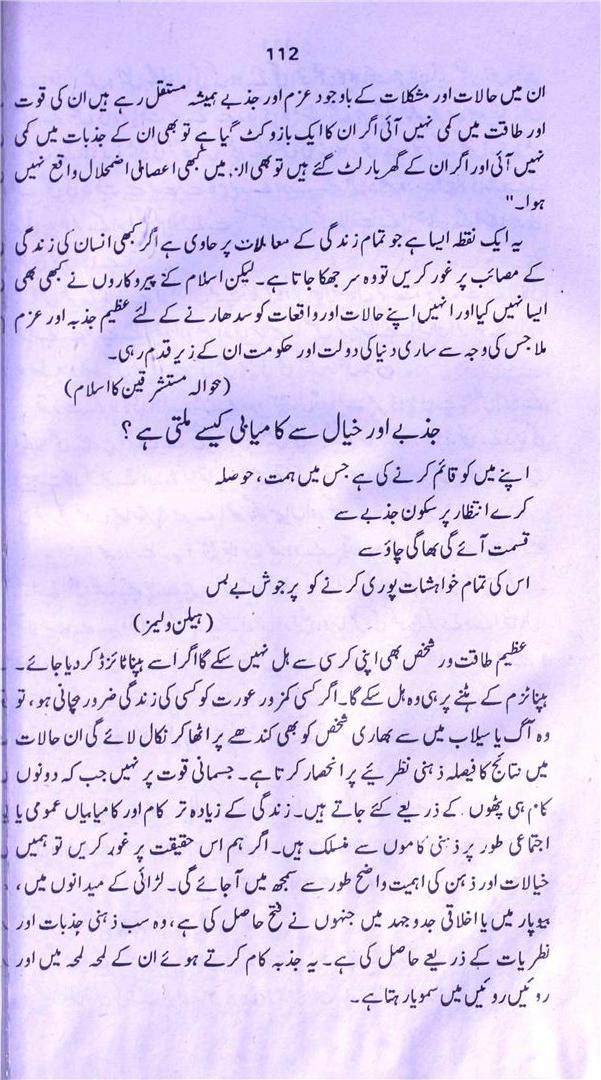 112
ان میں حالات اور مشکلات کے باوجود عزم اور جذبے ہمیشہ مستقل رہے ہیں ان کی قوت
اور طاقت میں کمی نہیں آئی اگر ان کا ایک بازو کٹ گیا ہے تو بھی ان کے جذبات میں کمی
نہیں آئی اور اگر ان کے گھر بار لٹ گئے ہیں تو بھی ان میں کبھی اعصابی اضمحلال واقع نہیں
ہوا۔"
یہ ایک نقطہ ایسا ہے جو تمام زندگی کے معاملات پر حاوی ہے اگر کبھی انسان کی زندگی
کے مصائب پر غور کریں تو وہ سر جھکا جاتا ہے۔ لیکن اسلام کے پیروکاروں نے کبھی بھی
ایسا نہیں کیا اور انہیں اپنے حالات اور واقعات کو سدھارنے کے لئے عظیم جذبہ اور عزم
ملا جس کی وجہ سے ساری دنیا کی دولت اور حکومت ان کے زیر قدم رہی۔
(حوالہ مستشرقین کا اسلام)
جذبے اور خیال سے کامیابی کیسے ملتی ہے؟
اپنے میں کو قائم کرنے کی ہے جس میں ہمت، حوصلہ
کرے انتظار پر سکون جذبے سے
قسمت آئے گی بھاگی چاؤ سے
اس کی تمام خواہشات پوری کرنے کو پر جوش بے بس
(ہیلن ولیمز)
عظیم طاقت ور شخص بھی اپنی کرسی سے ہل نہیں سکے گا اگر اسے ہپناٹائزڈ کر دیا جائے۔
ہپناٹزم کے ہٹنے پر ہی وہ ہل سکے گا۔ اگر کسی کمزور عورت کو کسی کی زندگی ضرور بچانی ہو، تو
وہ آگ یا سیلاب میں سے بھاری شخص کو بھی کندھے پر اٹھا کر نکال لائے گی ان حالات
میں نتائج کا فیصلہ ذہنی نظریئے پر انحصار کرتا ہے۔ جسمانی قوت پر نہیں جب کہ دونوں
کام ہی پٹھوں کے ذریعے کئے جاتے ہیں۔ زندگی کے زیادہ تر کام اور کامیابیاں عمومی یا
اجتماعی طور پر ذہنی کاموں سے منسلک ہیں۔ اگر ہم اس حقیقت پر غور کریں تو ہمیں
خیالات اور ذہن کی اہمیت واضح طور سے سمجھ میں آ جائے گی۔ لڑائی کے میدانوں میں،
بیوپار میں یا اخلاقی جدوجہد میں جنہوں نے فتح حاصل کی ہے، وہ سب ذہنی جذبات اور
نظریات کے ذریعے حاصل کی ہے۔ یہ جذبہ کام کرتے ہوئے ان کے لمحہ لمحہ میں اور
روئیں روئیں میں سمویا رہتا ہے۔